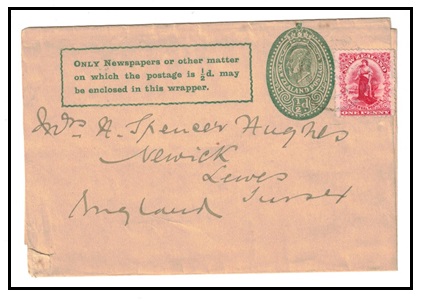 ONLY Newspapers or other matter
on which the postage is ½d. may
be enclosed in this wrapper.
NEW ZEALAND POSTAGE
½d
NEW ZEALAND
ONE PENNY
Mrs A. Spencer Hughes
Newick
Lewes
England Sussex